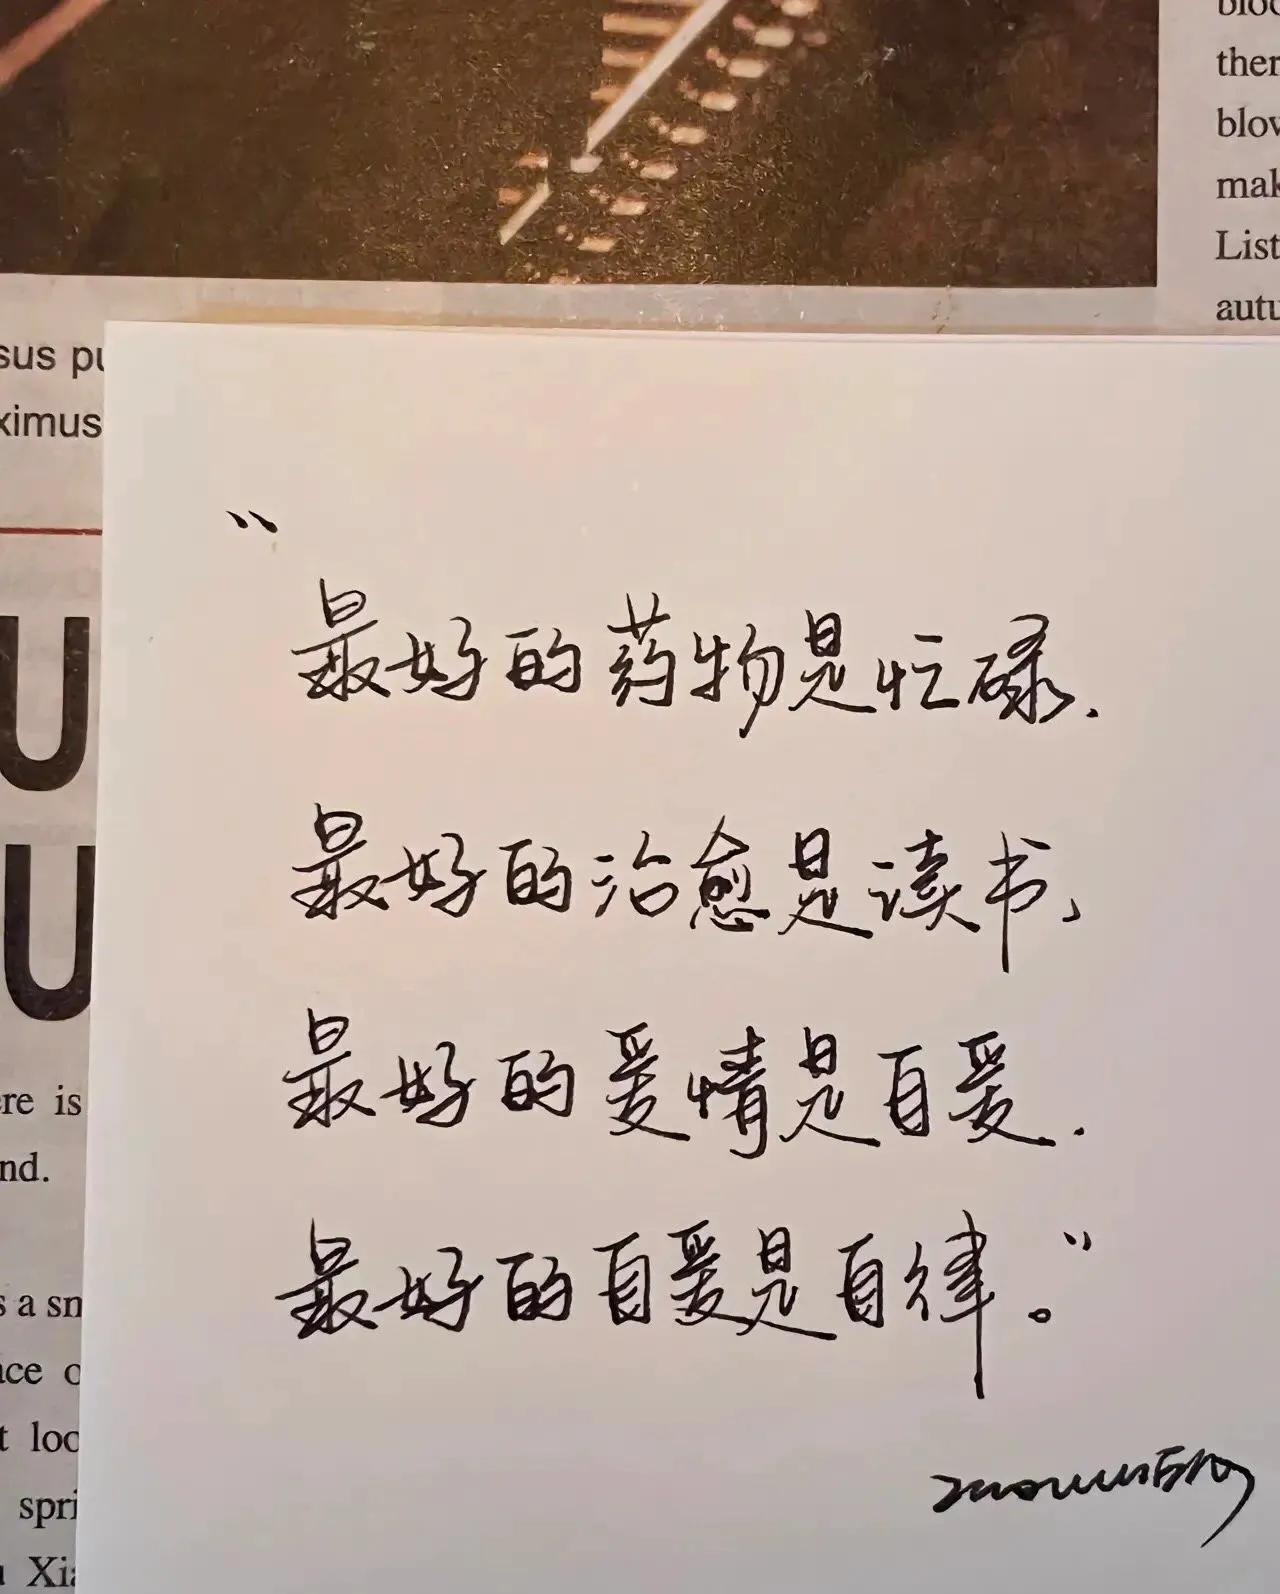 ther
blow
mak
List
autu
sus pu
ximus
U
U
ere is
nd.
s a sm
ace o
t loo
spri
u Xia
“
最好的药物是忙碌.
最好的治愈是读书、
最好的爱情是自爱.
最好的自爱是自律。”